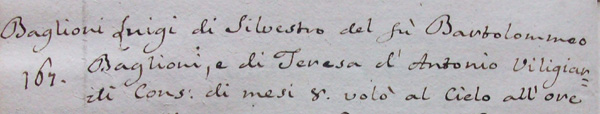 Baglioni Luigi di Silvestro del fù Bartolommeo
167. Baglioni, e di Teresa d' Antonio Viligiar=
di Cons: di mesi 8. volò al Cielo all' ore